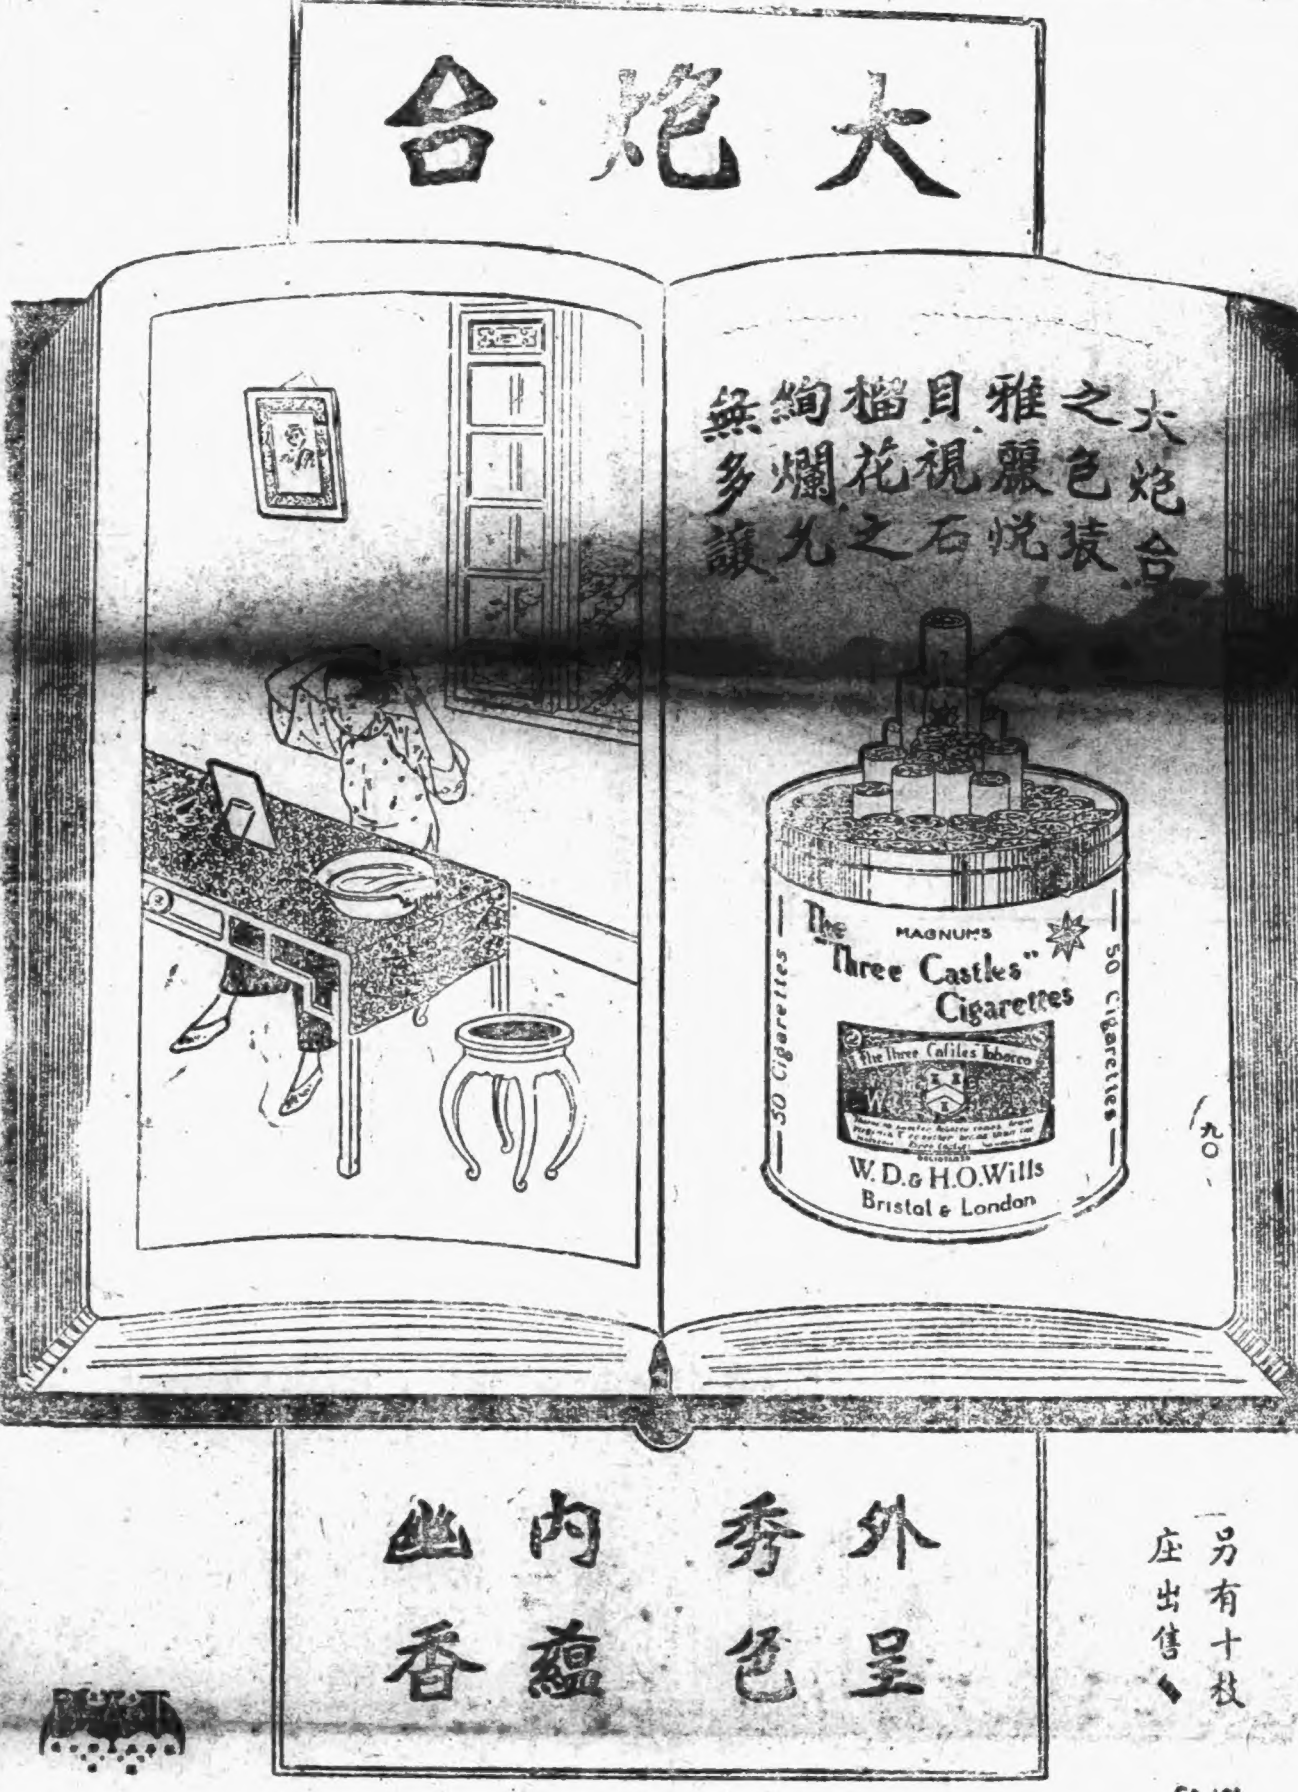 大炮台
大炮台
之色裝
雅麗悅
目視石
榴花之
絢爛尤
無多讓
MAGNUMS
The
"Three Castles"
Cigarettes
50 Cigarettes
50 Cigarettes
The Three Castles Tobacco
W.D. & H.O. Wills
Bristol & London
九〇
外呈
秀色
內蘊
幽香
另有十枝
庄出售